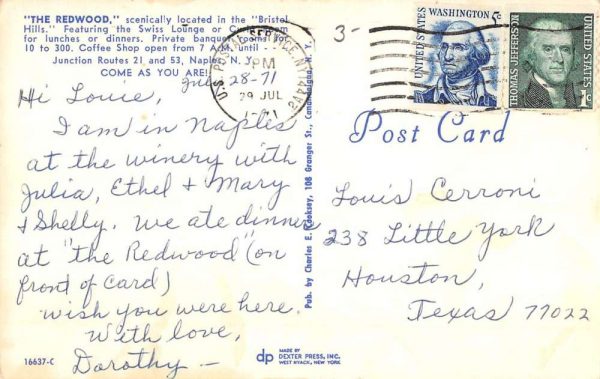 "THE REDWOOD," scenically located in the "Bristol
Hills." Featuring the Swiss Lounge or
for lunches or dinners. Private banquet rooms for
10 to 300. Coffee Shop open from 7 A.M. until
Junction Routes 21 and 53, Naples, N. Y.
COME AS YOU ARE!
July 28-71
Hi Louie,
I am in Naples
at the winery with
Julia, Ethel + Mary
+ Shelly. We ate dinner
at "the Redwood" (on
front of card)
wish you were here.
With love,
Dorothy -
16637-C
Pub. by Charles E. Cooksey, 108 Granger St., Canandaigua, N. Y.
dp
MADE BY
DEXTER PRESS, INC.
WEST NYACK, NEW YORK
3-
U.S. POSTAL SERVICE, NY
PM
29 JUL
UNITED STATES
WASHINGTON 5c
THOMAS JEFFERSON
1c
UNITED STATES
Post Card
Louis Cerroni
238 Little York
Houston,
Texas 77022